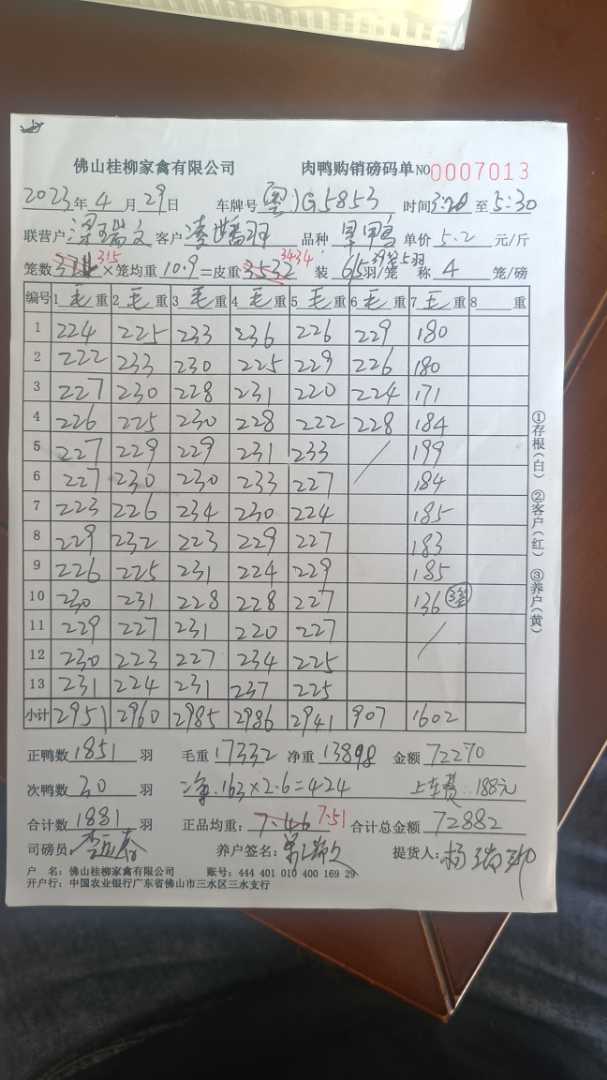 佛山桂柳家禽有限公司 肉鸭购销磅码单 NO 0007013
2023年4月29日 车牌号 粤 G5853 时间 3:20 至 5:30
联营户 梁瑞文 客户 品种 单价 5.2 元/斤
笼数 315 ×笼均重 10.9 =皮重 3532 3434 装 6 羽/笼 5羽 称 4 笼/磅
编号 1 毛 重 2 毛 重 3 毛 重 4 毛 重 5 毛 重 6 毛 重 7 毛 重 8 重
1 224 225 233 236 226 229 180
2 222 233 230 225 229 226 180
3 227 230 228 231 220 224 171
4 226 225 230 228 222 228 184
5 227 229 229 231 233 199
6 227 230 230 233 227 184
7 223 226 234 230 224 185
8 229 232 223 229 227 183
9 226 225 231 224 229 185
10 230 231 228 228 227 136
11 229 227 231 220 227
12 230 223 227 234 225
13 231 224 231 237 225
小计 2951 2960 2985 2986 2941 907 1602
正鸭数 1851 羽 毛重 17332 净重 13898 金额 72270
次鸭数 30 羽 净.163×2.6=424 上车费:188元
合计数 1881 羽 正品均重: 7.46 7.51 合计总金额 72882
司磅员: 养户签名: 提货人:
户 名:佛山桂柳家禽有限公司 账号:444 401 010 400 169 29
开户行:中国农业银行广东省佛山市三水区三水支行
①存根(白) ②客户(红) ③养户(黄)